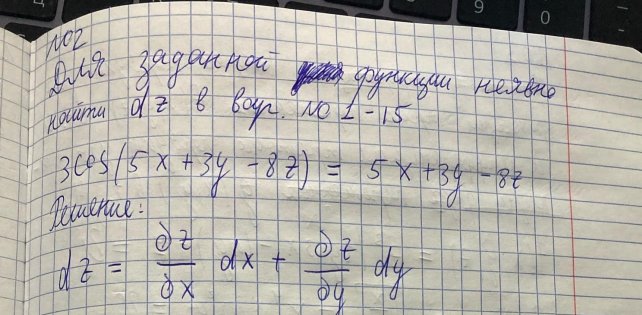 №2
Для заданной функции неявно
найти dz в вар. №1-15
3cos(5x+3y-8z) = 5x+3y-8z
Решение:
dz = ∂z/∂x dx + ∂z/∂y dy
9
0